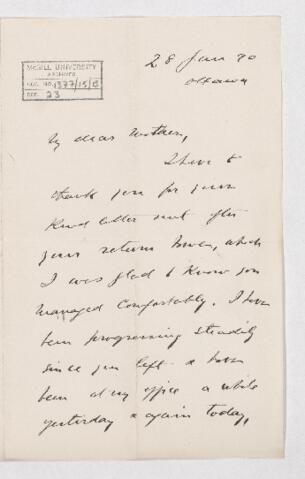 28 Jan 90
Ottawa
McGILL UNIVERSITY
ARCHIVES
ACC. NO. 1377/15/C
REF. 23
My dear Mother,
I have to
thank you for your
kind letter sent after
your return home, which
I was glad to know you
managed comfortably. I have
been progressing steadily
since you left & have
been at my office a while
yesterday & again today,